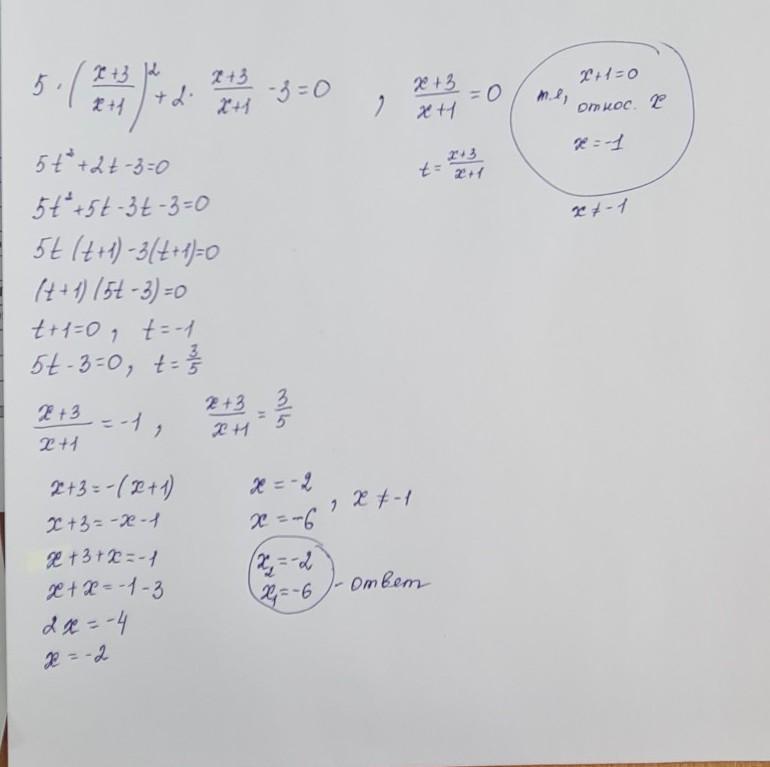 5 · (x+3/x+1)² + 2 · x+3/x+1 - 3 = 0 , x+3/x+1 = 0
x+1=0
т.е, относ. x
x = -1
t = x+3/x+1
x ≠ -1
5t² + 2t - 3 = 0
5t² + 5t - 3t - 3 = 0
5t (t+1) - 3(t+1) = 0
(t+1) (5t - 3) = 0
t+1=0 , t = -1
5t - 3 = 0, t = 3/5
x+3/x+1 = -1 , x+3/x+1 = 3/5
x+3 = -(x+1)
x+3 = -x-1
x+3+x = -1
x+x = -1-3
2x = -4
x = -2
x = -2
x = -6 , x ≠ -1
x₂ = -2
x₁ = -6 - ответ